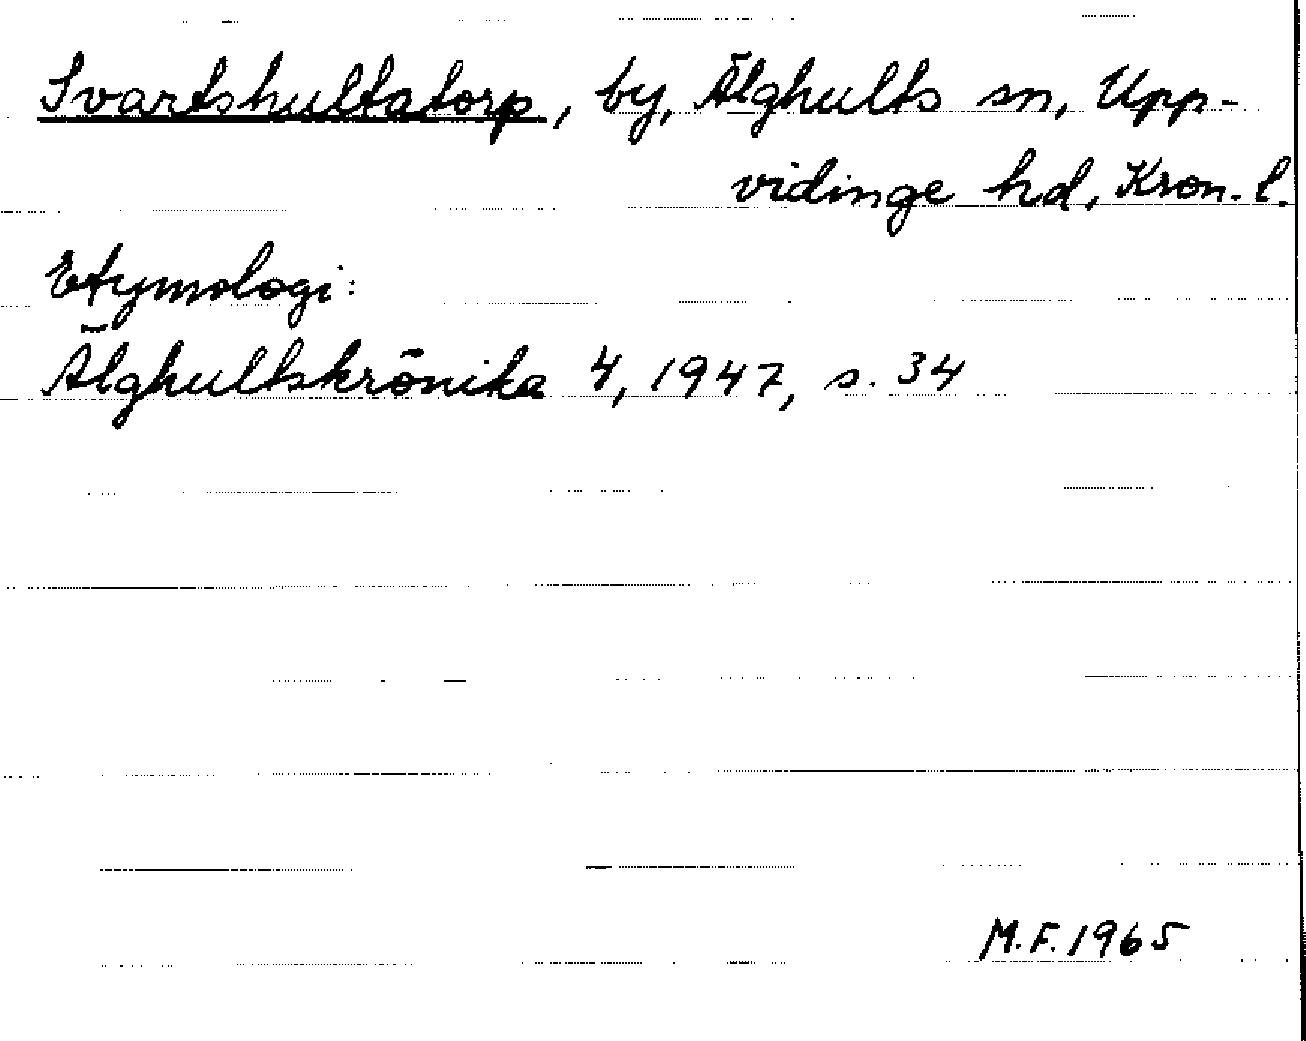 Svartshultatorp, by, Älghults sn, Upp-
vidinge hd, Kron. l.
Etymologi:
Älghultskrönika 4, 1947, s. 34
M.F. 1965